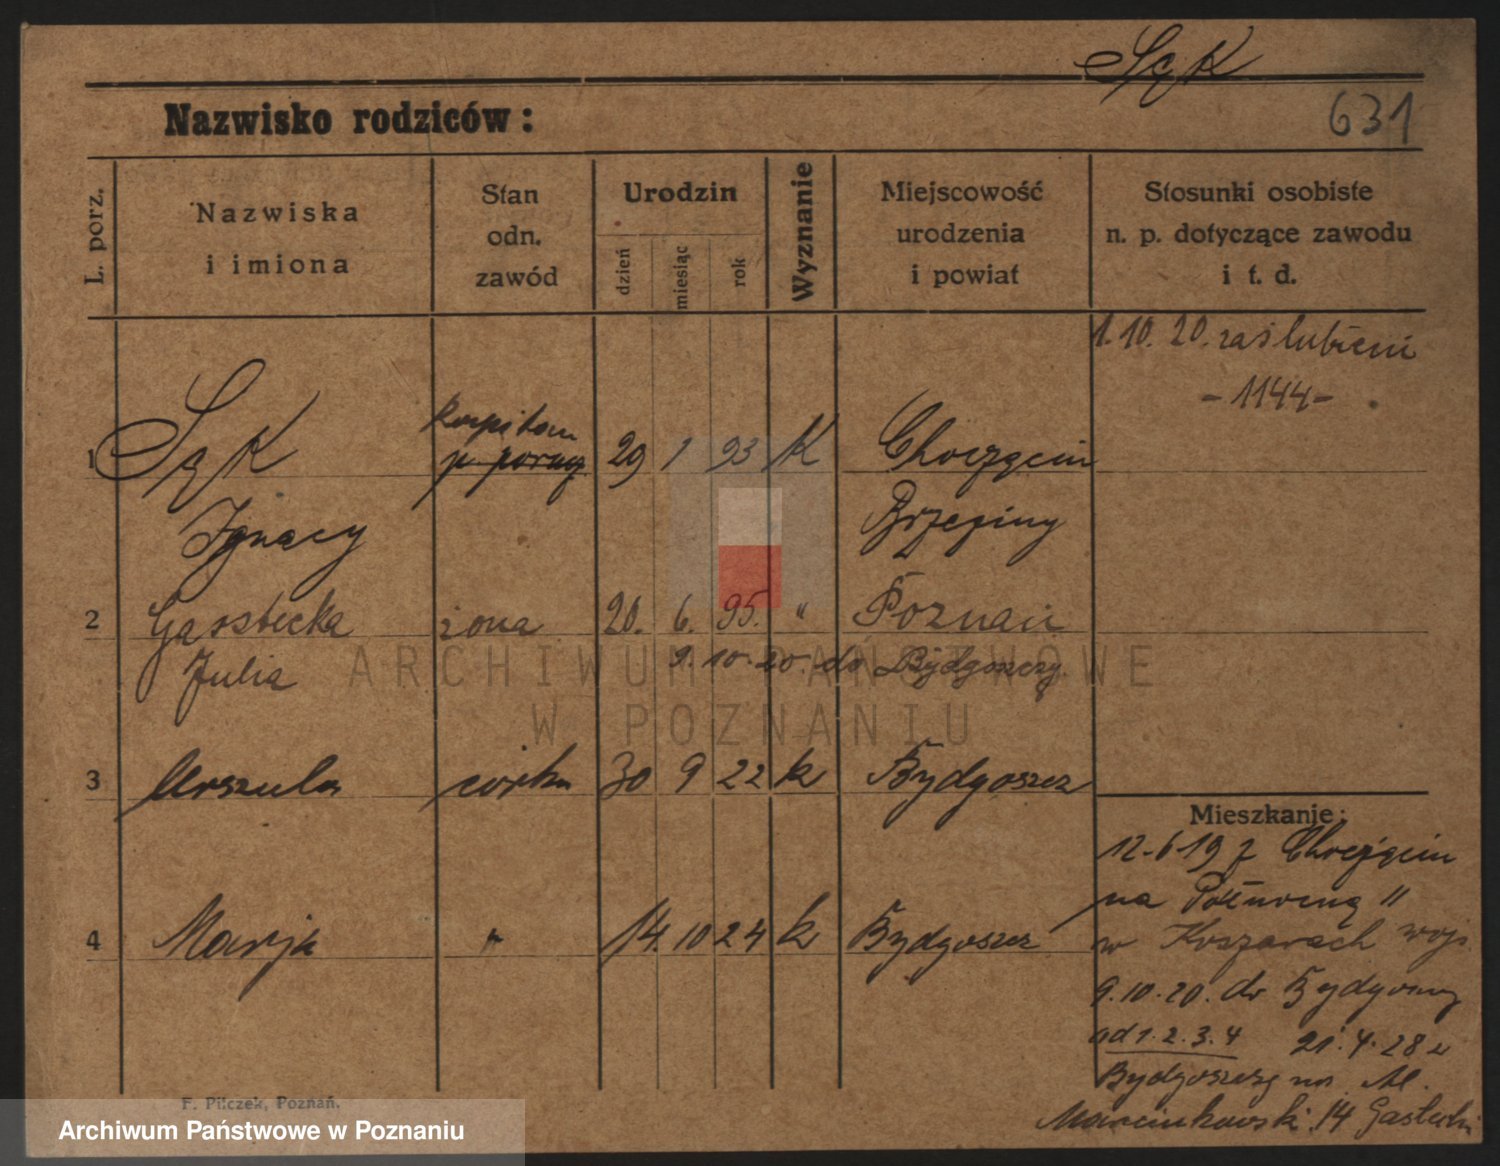 Sąk
631
Nazwisko rodziców:
L. porz.
Nazwiska
i imiona
Stan
odn.
zawód
Urodzin
dzień
miesiąc
rok
Wyznanie
Miejscowość
urodzenia
i powiat
Stosunki osobiste
n. p. dotyczące zawodu
i t. d.
1.10.20. zaślubieni
- 1144 -
kapitan
1 Sąk p. porucz 29 1 93 K Choczęcin
Ignacy Brzeziny
2 Gastecka żona 20. 6. 95. " Poznań
Julia 9.10.20. do Bydgoszczy
3 Urszula córka 30 9 22 k Bydgoszcz
4 Marja " 14. 10 24 k Bydgoszcz
Mieszkanie:
12-6-19 z
na Półnwcną 11
w Koszarach wojs.
9.10.20. do Bydgoszczy
ad 1.2.3.4 21.4.28 z
Bydgoszczy na Al.
Marcinkowski. 14
F. Pilczek, Poznań.
ARCHIWUM PAŃSTWOWE
W POZNANIU
Archiwum Państwowe w Poznaniu